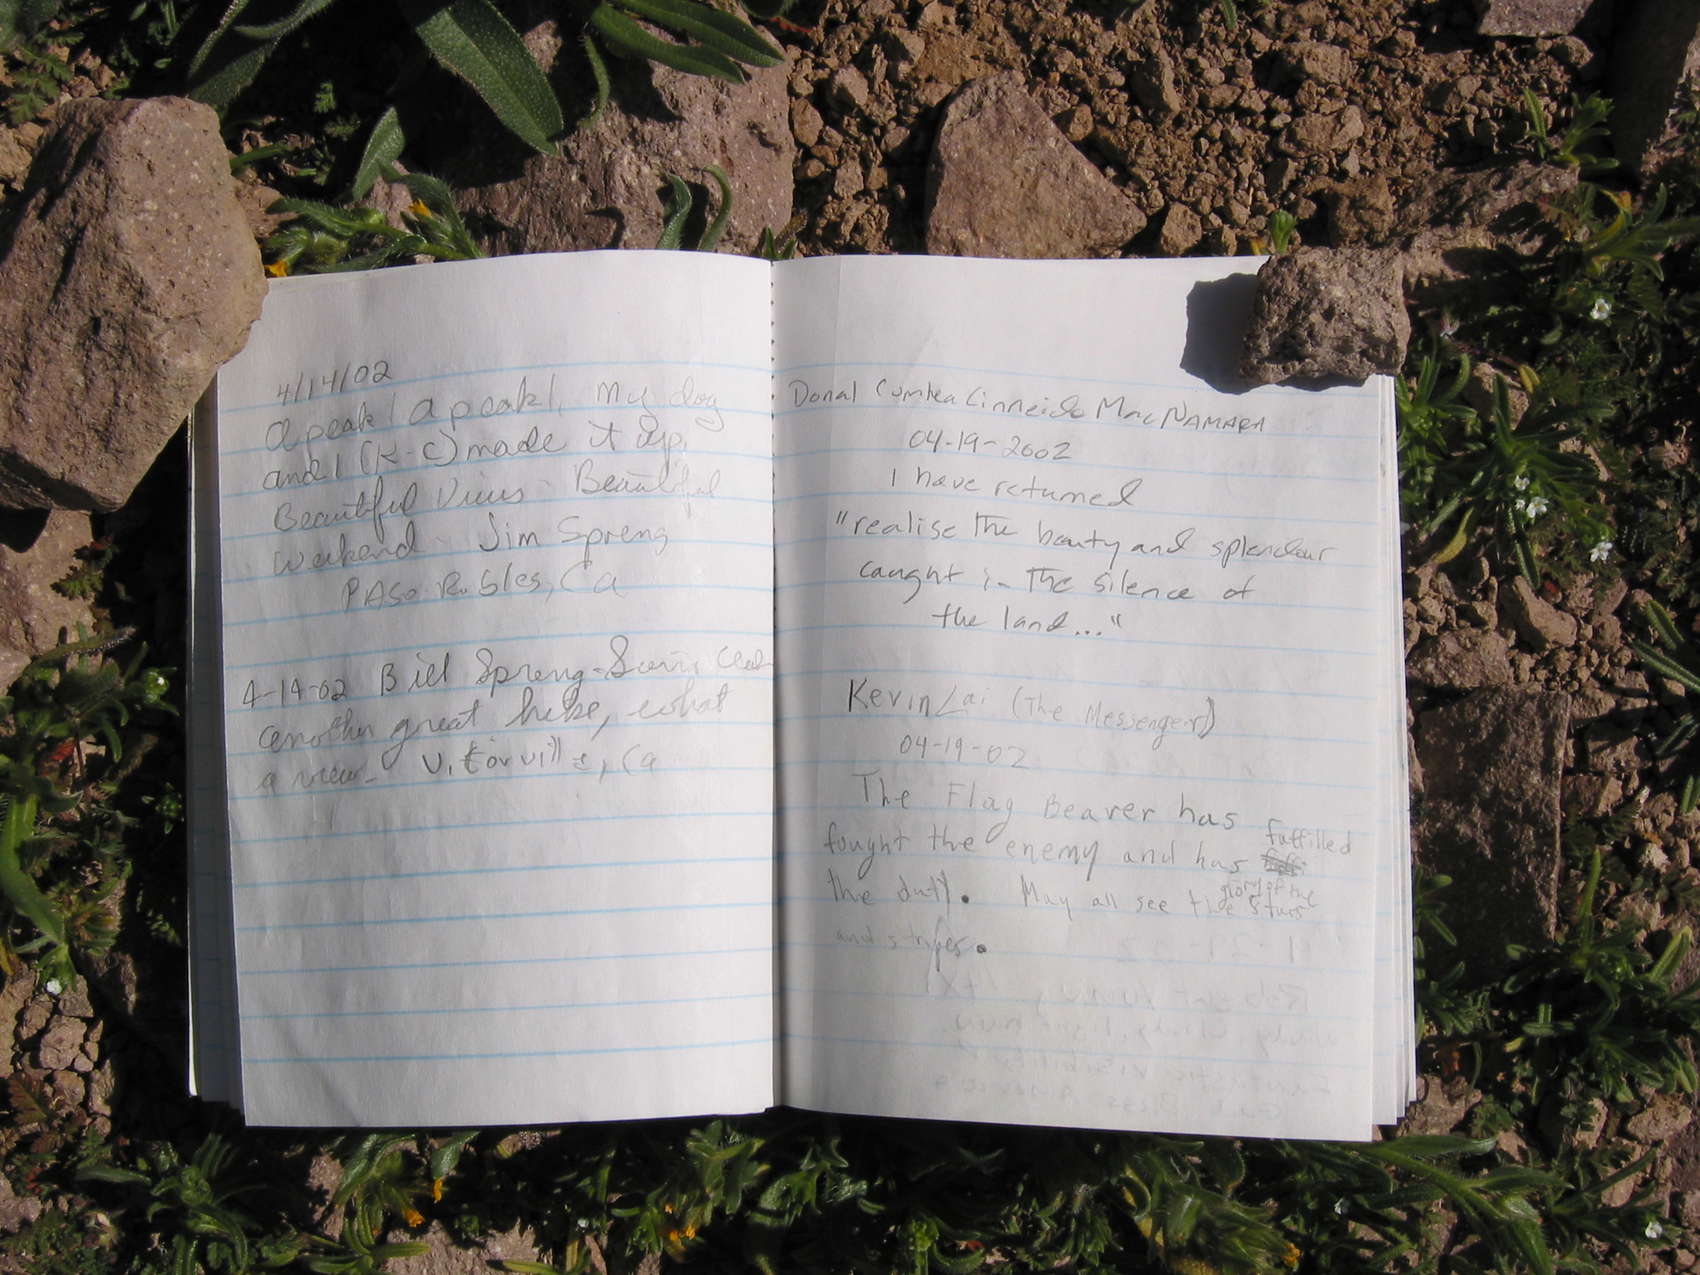 4/14/02
A peak! A peak!, My dog
and I (K-C) made it up,
Beautiful Views - Beautiful
weekend - Jim Spreng
PASo Robles, Ca
4-14-02 Bill Spreng-Sierra Club
another great hike, what
a view- Victorville, Ca
Donal Cinneide MacNAMARA
04-19-2002
I have returned
"realise the beauty and splendour
caught in the silence of
the land..."
Kevin Lai (The Messenger)
04-19-02
The Flag Beaver has
fought the enemy and has fulfilled
the duty. May all see the glory of the stars
and stripes.